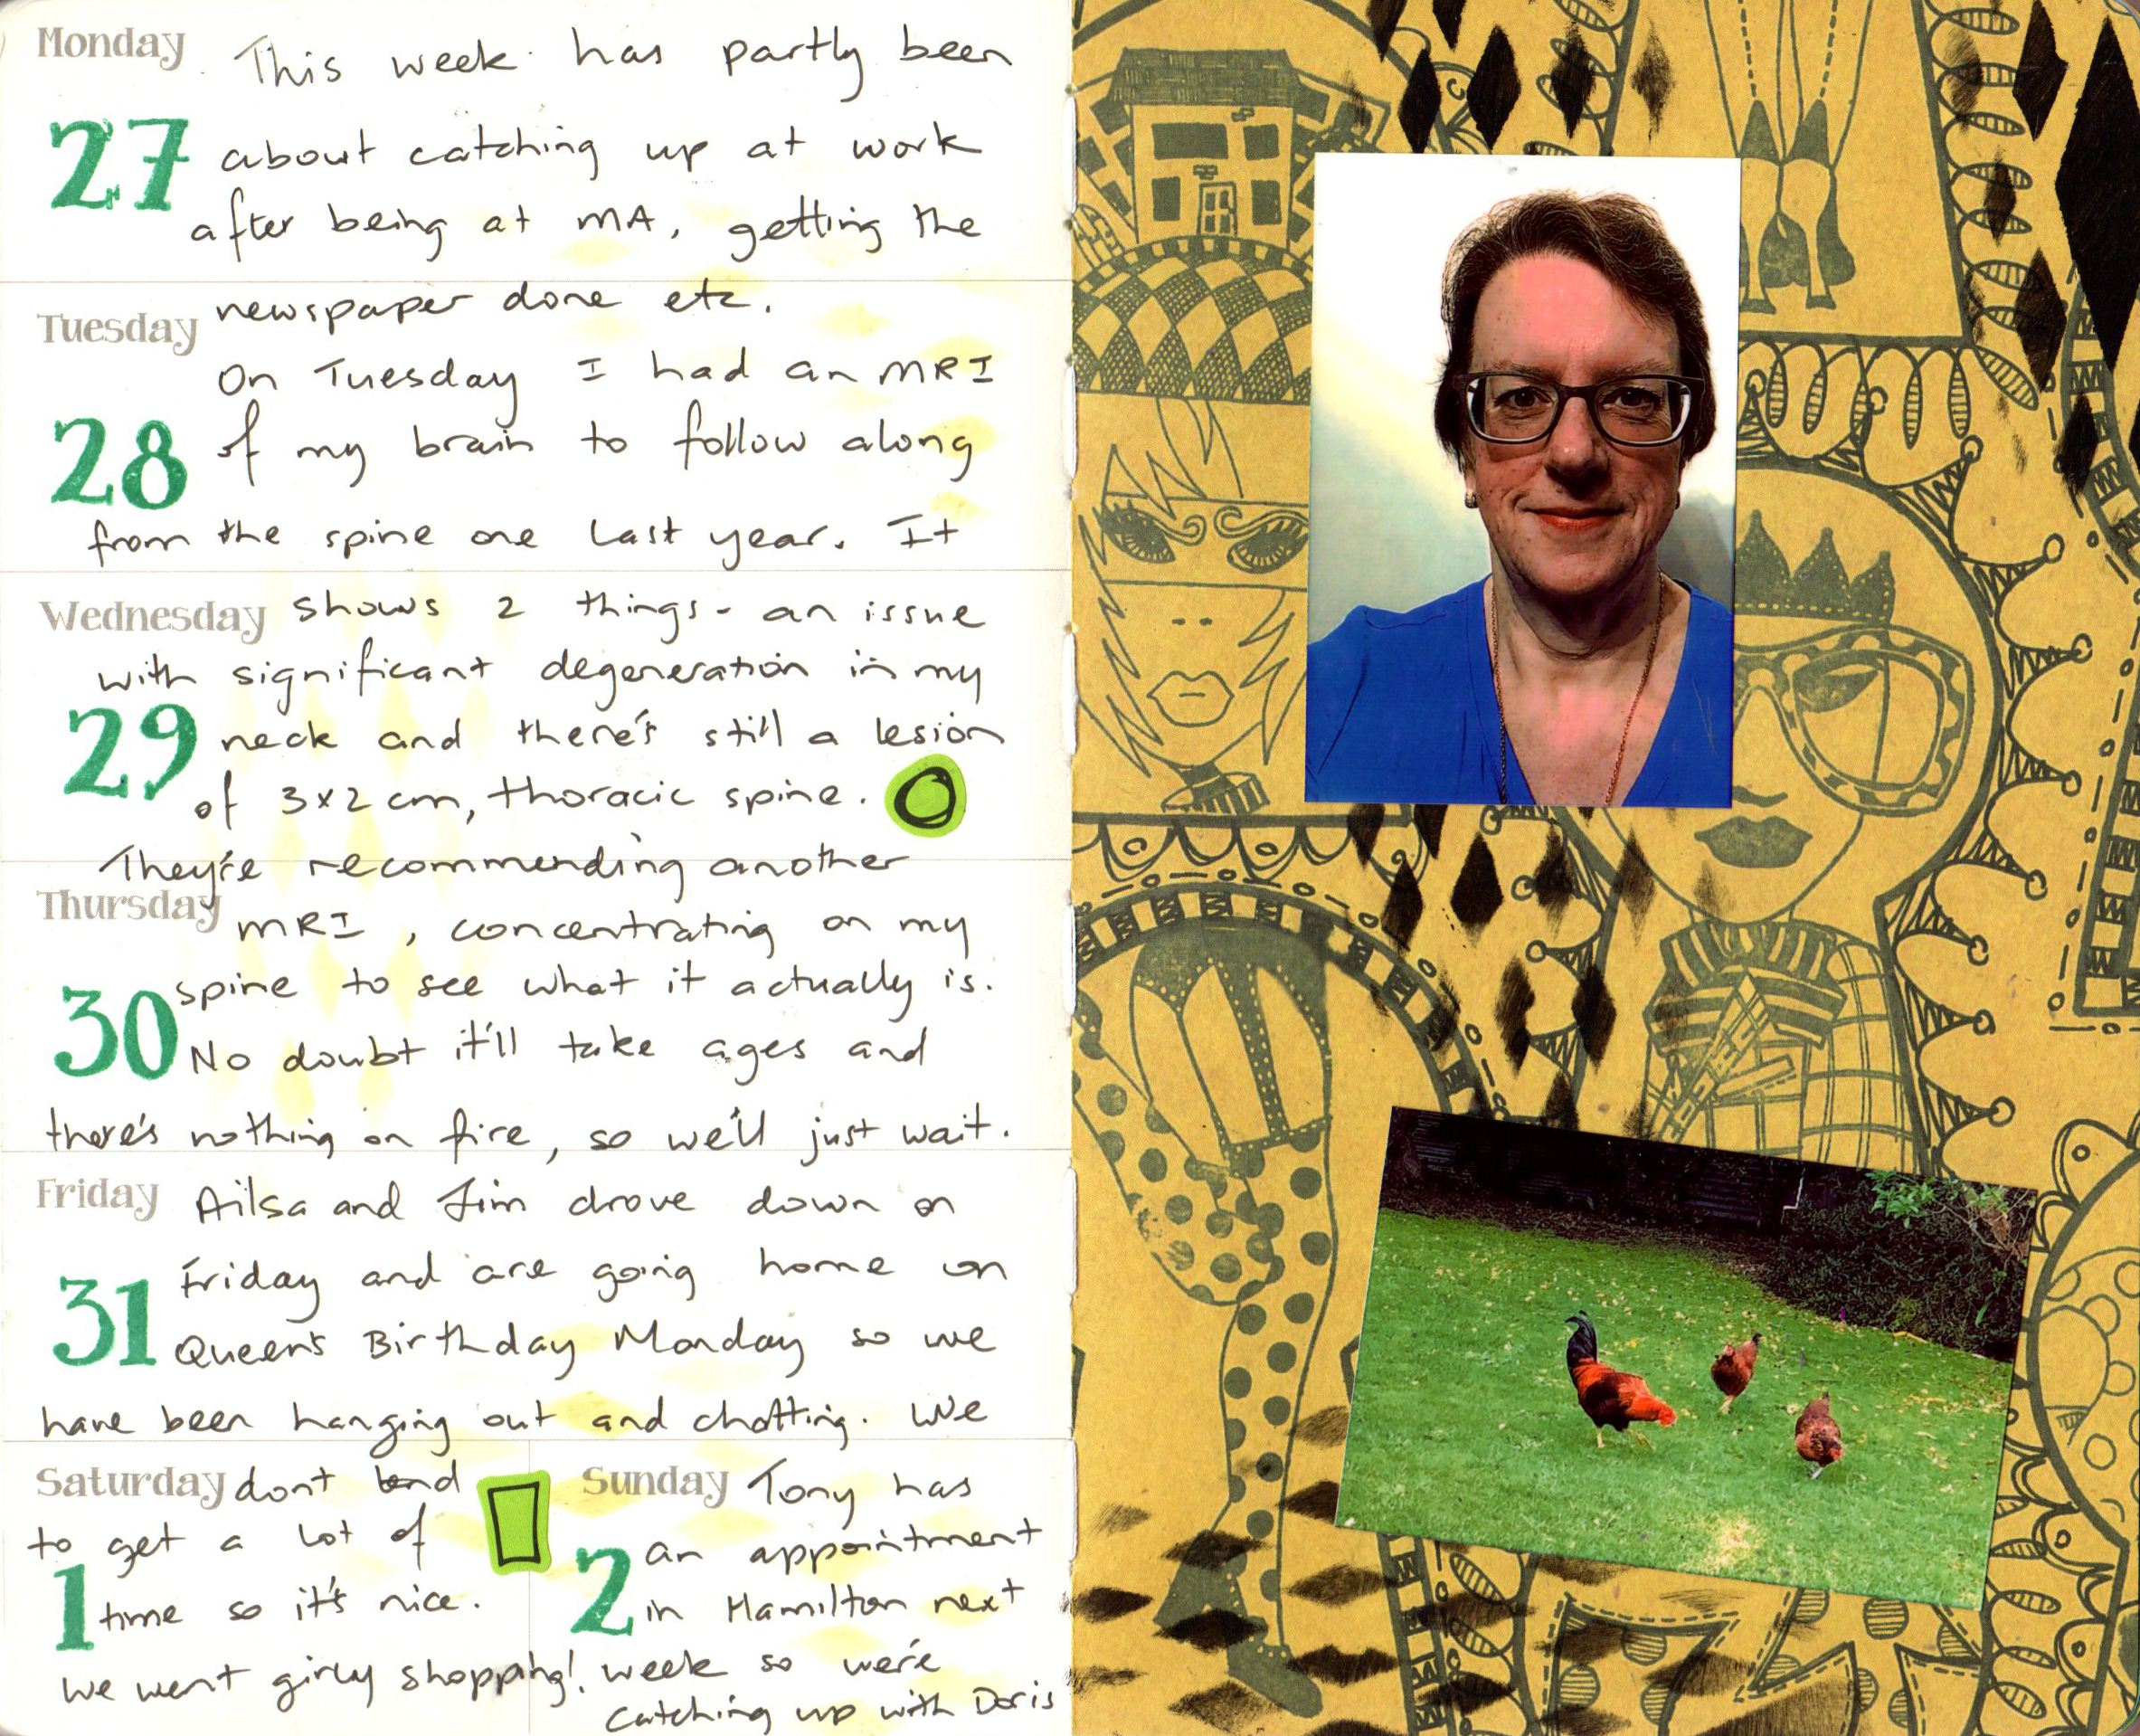 Monday This week has partly been
27 about catching up at work
after being at MA, getting the
newspaper done etc.
Tuesday
On Tuesday I had an MRI
28 of my brain to follow along
from the spine one last year. It
Wednesday shows 2 things - an issue
with significant degeneration in my
29 neck and there's still a lesion
of 3x2 cm, thoracic spine.
They're recommending another
Thursday MRI, concentrating on my
30 spine to see what it actually is.
No doubt it'll take ages and
there's nothing on fire, so we'll just wait.
Friday Ailsa and Jim drove down on
31 Friday and are going home on
Queen's Birthday Monday so we
have been hanging out and chatting. We
Saturday dont tend
to get a lot of
1 time so it's nice.
We went girly shopping!
Sunday Tony has
2 an appointment
in Hamilton next
week so we're
catching up with Doris